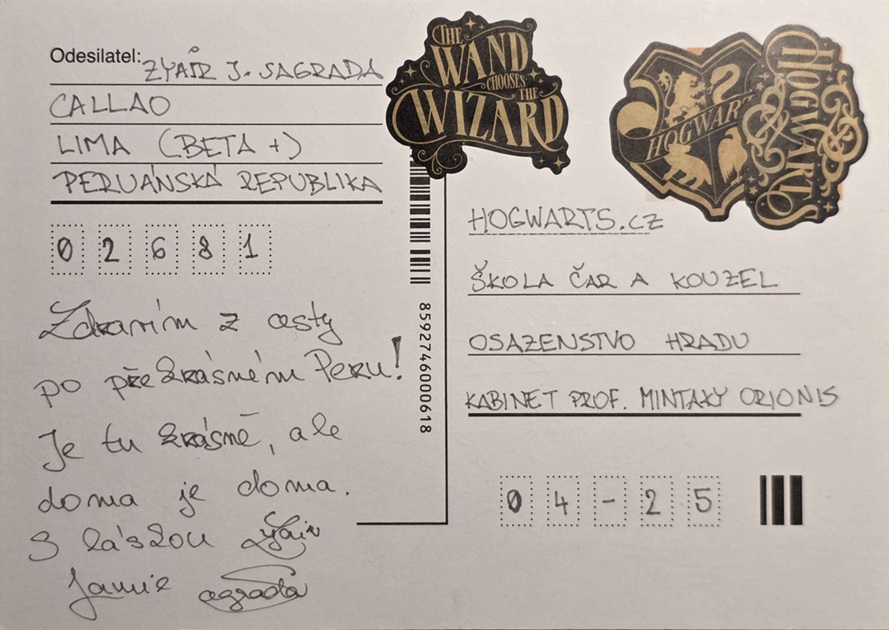 Odesilatel: ZYAIR J. SAGRADA
CALLAO
LIMA (BETA +)
PERUÁNSKÁ REPUBLIKA
0 2 6 8 1
Zdravím z cesty
po překrásném Peru!
Je tu krásně, ale
doma je doma.
S láskou Zyair
Jamie Sagrada
THE
WAND
CHOOSES THE
WIZARD
8592746000618
HOGWARTS
HOGWARTS
HOGWARTS.CZ
ŠKOLA ČAR A KOUZEL
OSAZENSTVO HRADU
KABINET PROF. MINTAXY ORIONIS
0 4 - 2 5